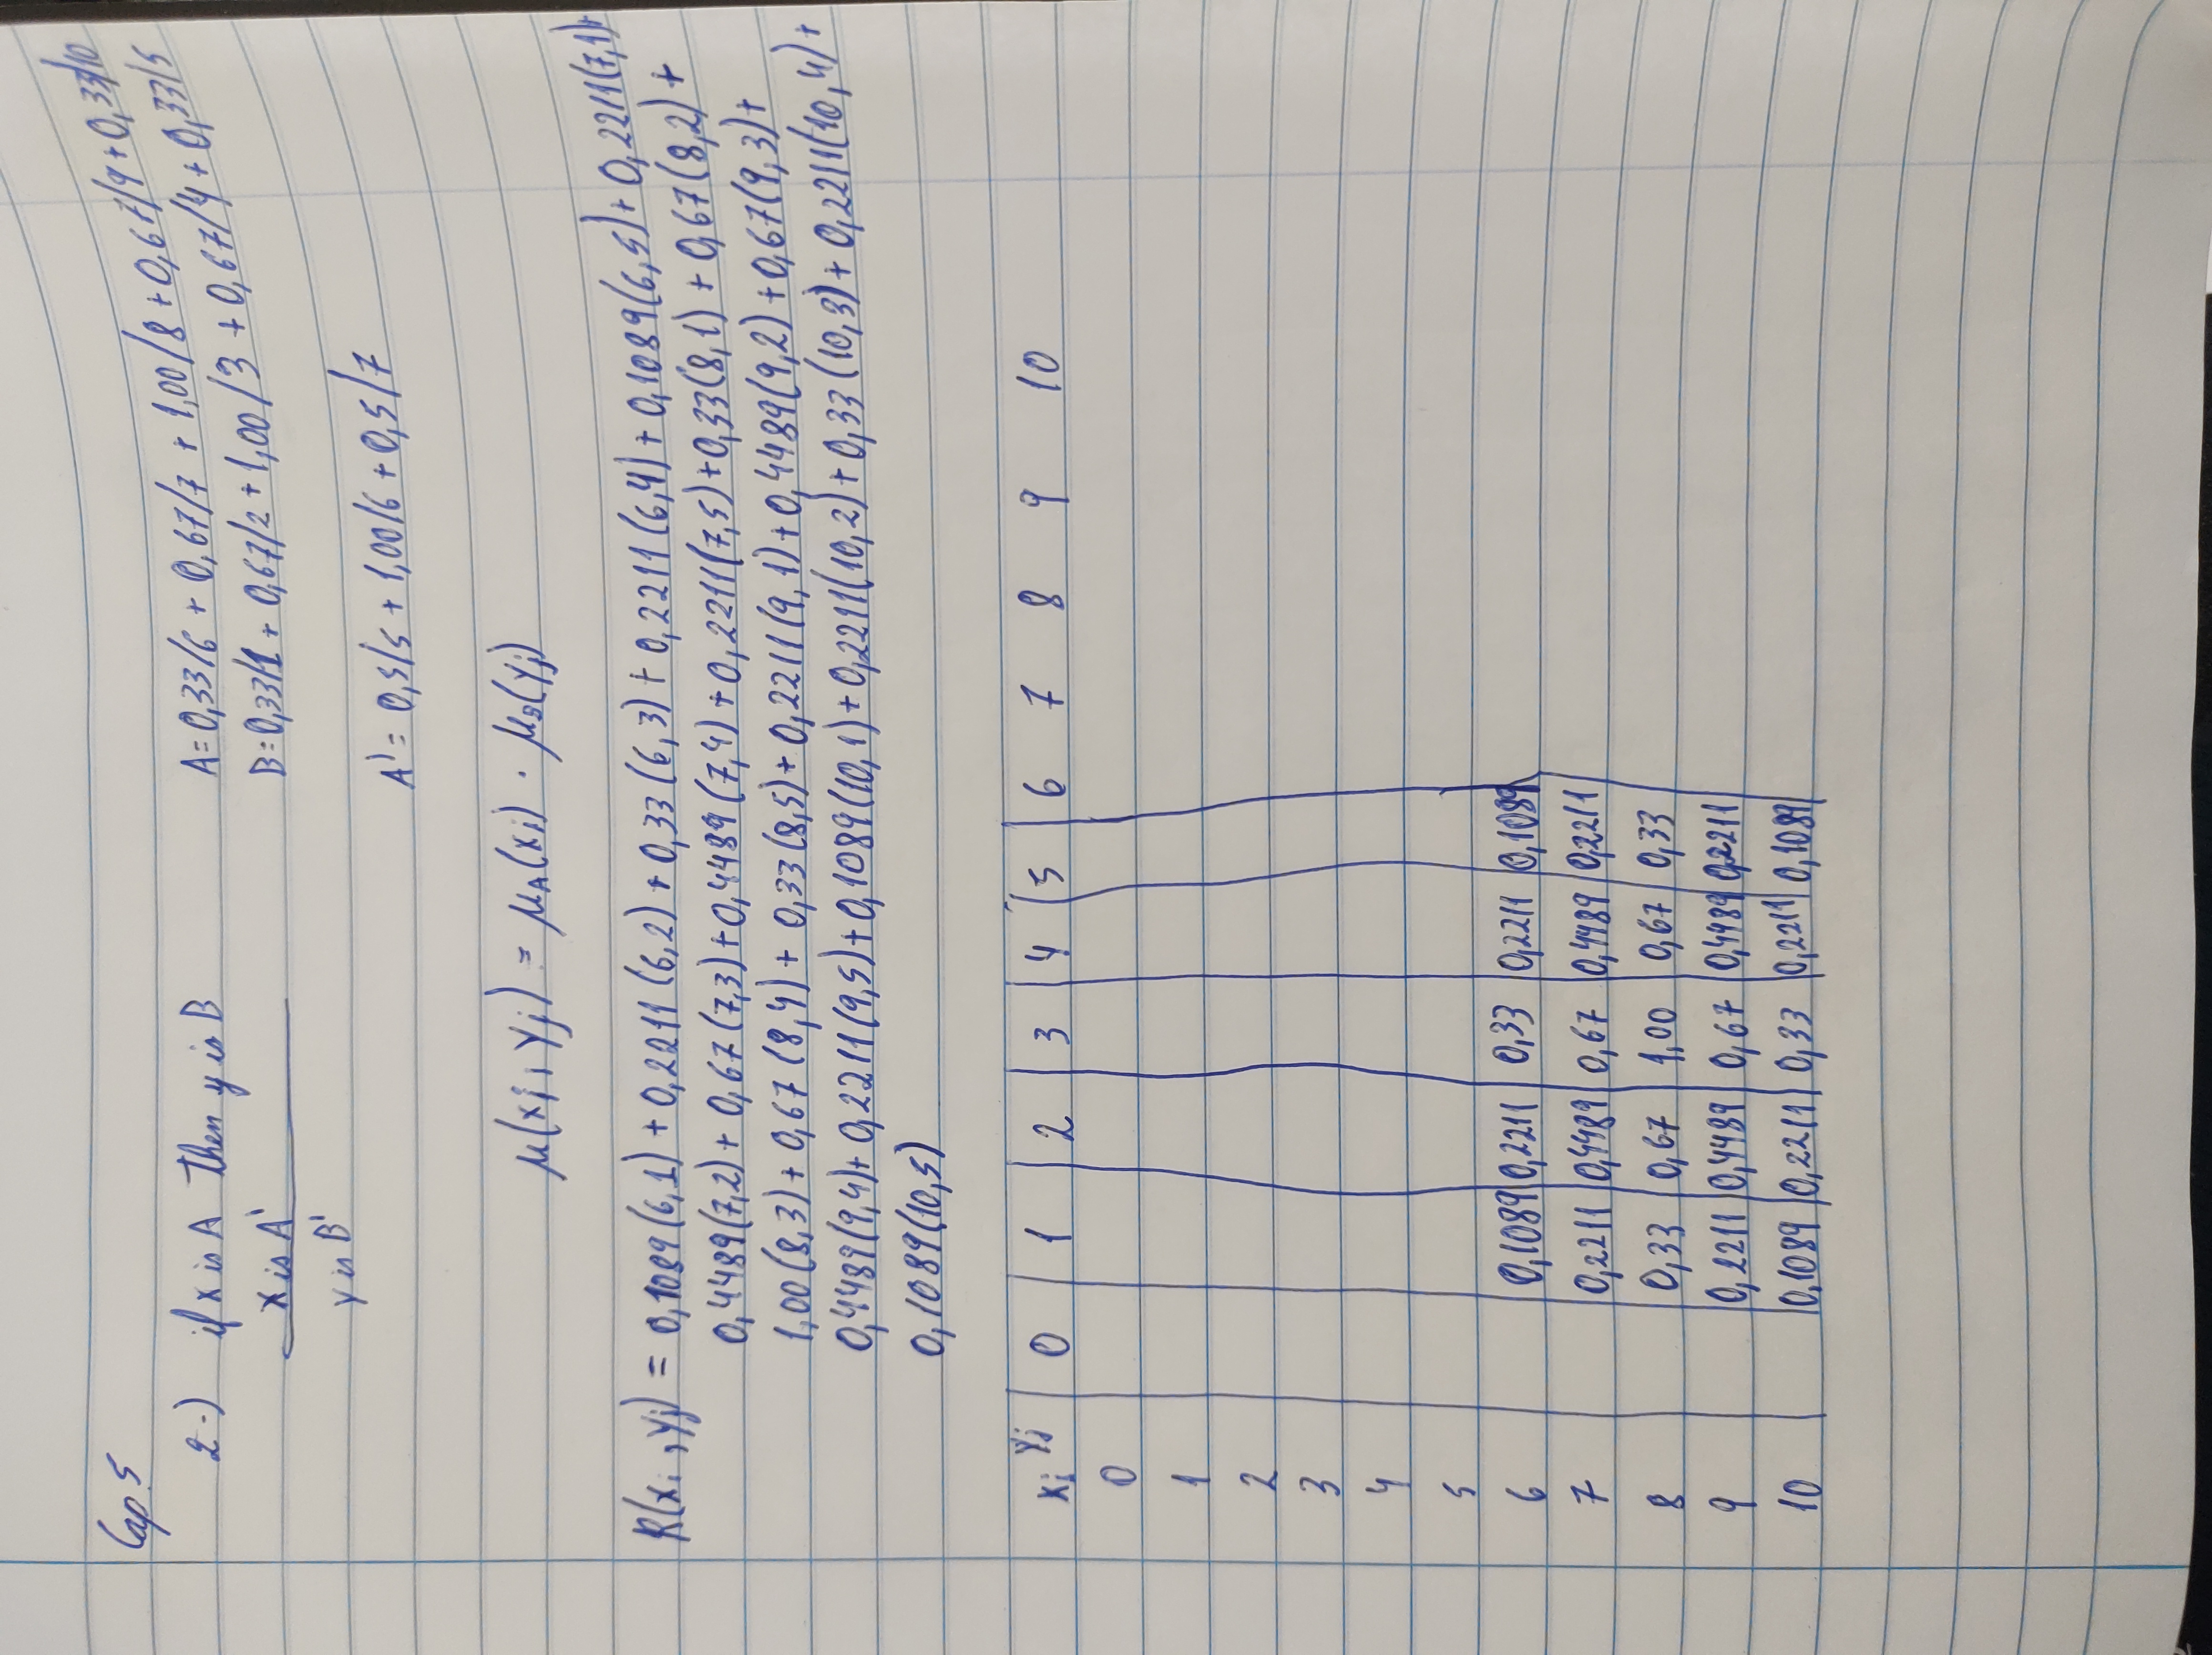 Cap. 5
2-) if x is A then y is B
x is A'
y is B'
A = 0,33/6 + 0,67/7 + 1,00/8 + 0,67/9 + 0,33/10
B = 0,33/1 + 0,67/2 + 1,00/3 + 0,67/4 + 0,33/5
A' = 0,5/5 + 1,00/6 + 0,5/7
μ(xi, yj) = μA(xi) · μB(yj)
R(xi, yj) = 0,1089(6,1) + 0,2211(6,2) + 0,33(6,3) + 0,2211(6,4) + 0,1089(6,5) + 0,2211(7,1) +
0,4489(7,2) + 0,67(7,3) + 0,4489(7,4) + 0,2211(7,5) + 0,33(8,1) + 0,67(8,2) +
1,00(8,3) + 0,67(8,4) + 0,33(8,5) + 0,2211(9,1) + 0,4489(9,2) + 0,67(9,3) +
0,4489(9,4) + 0,2211(9,5) + 0,1089(10,1) + 0,2211(10,2) + 0,33(10,3) + 0,2211(10,4) +
0,1089(10,5)
xi yj 0 1 2 3 4 5 6 7 8 9 10
0
1
2
3
4
5
6 0,1089 0,2211 0,33 0,2211 0,1089
7 0,2211 0,4489 0,67 0,4489 0,2211
8 0,33 0,67 1,00 0,67 0,33
9 0,2211 0,4489 0,67 0,4489 0,2211
10 0,1089 0,2211 0,33 0,2211 0,1089